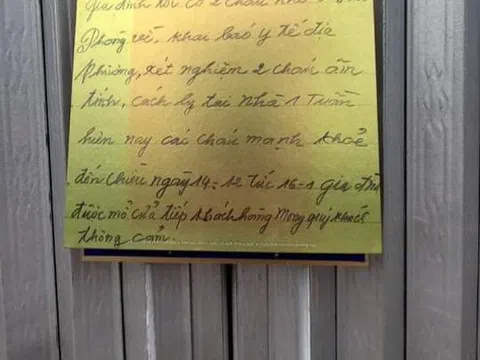 Gia đình tôi có 2 cháu nhỏ ở
Phòng về. Khai báo y tế địa
Phương, xét nghiệm 2 cháu âm
tính, cách ly tại nhà 1 Tuần
hiện nay các cháu mạnh khoẻ
đến chiều ngày 14-12 tức 16-1 gia đình
được mở cửa tiếp khách hàng Mong quý khách
thông cảm.